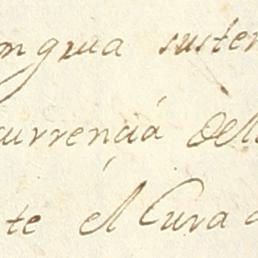 ongrua susten
currencia dell
te el Cura d